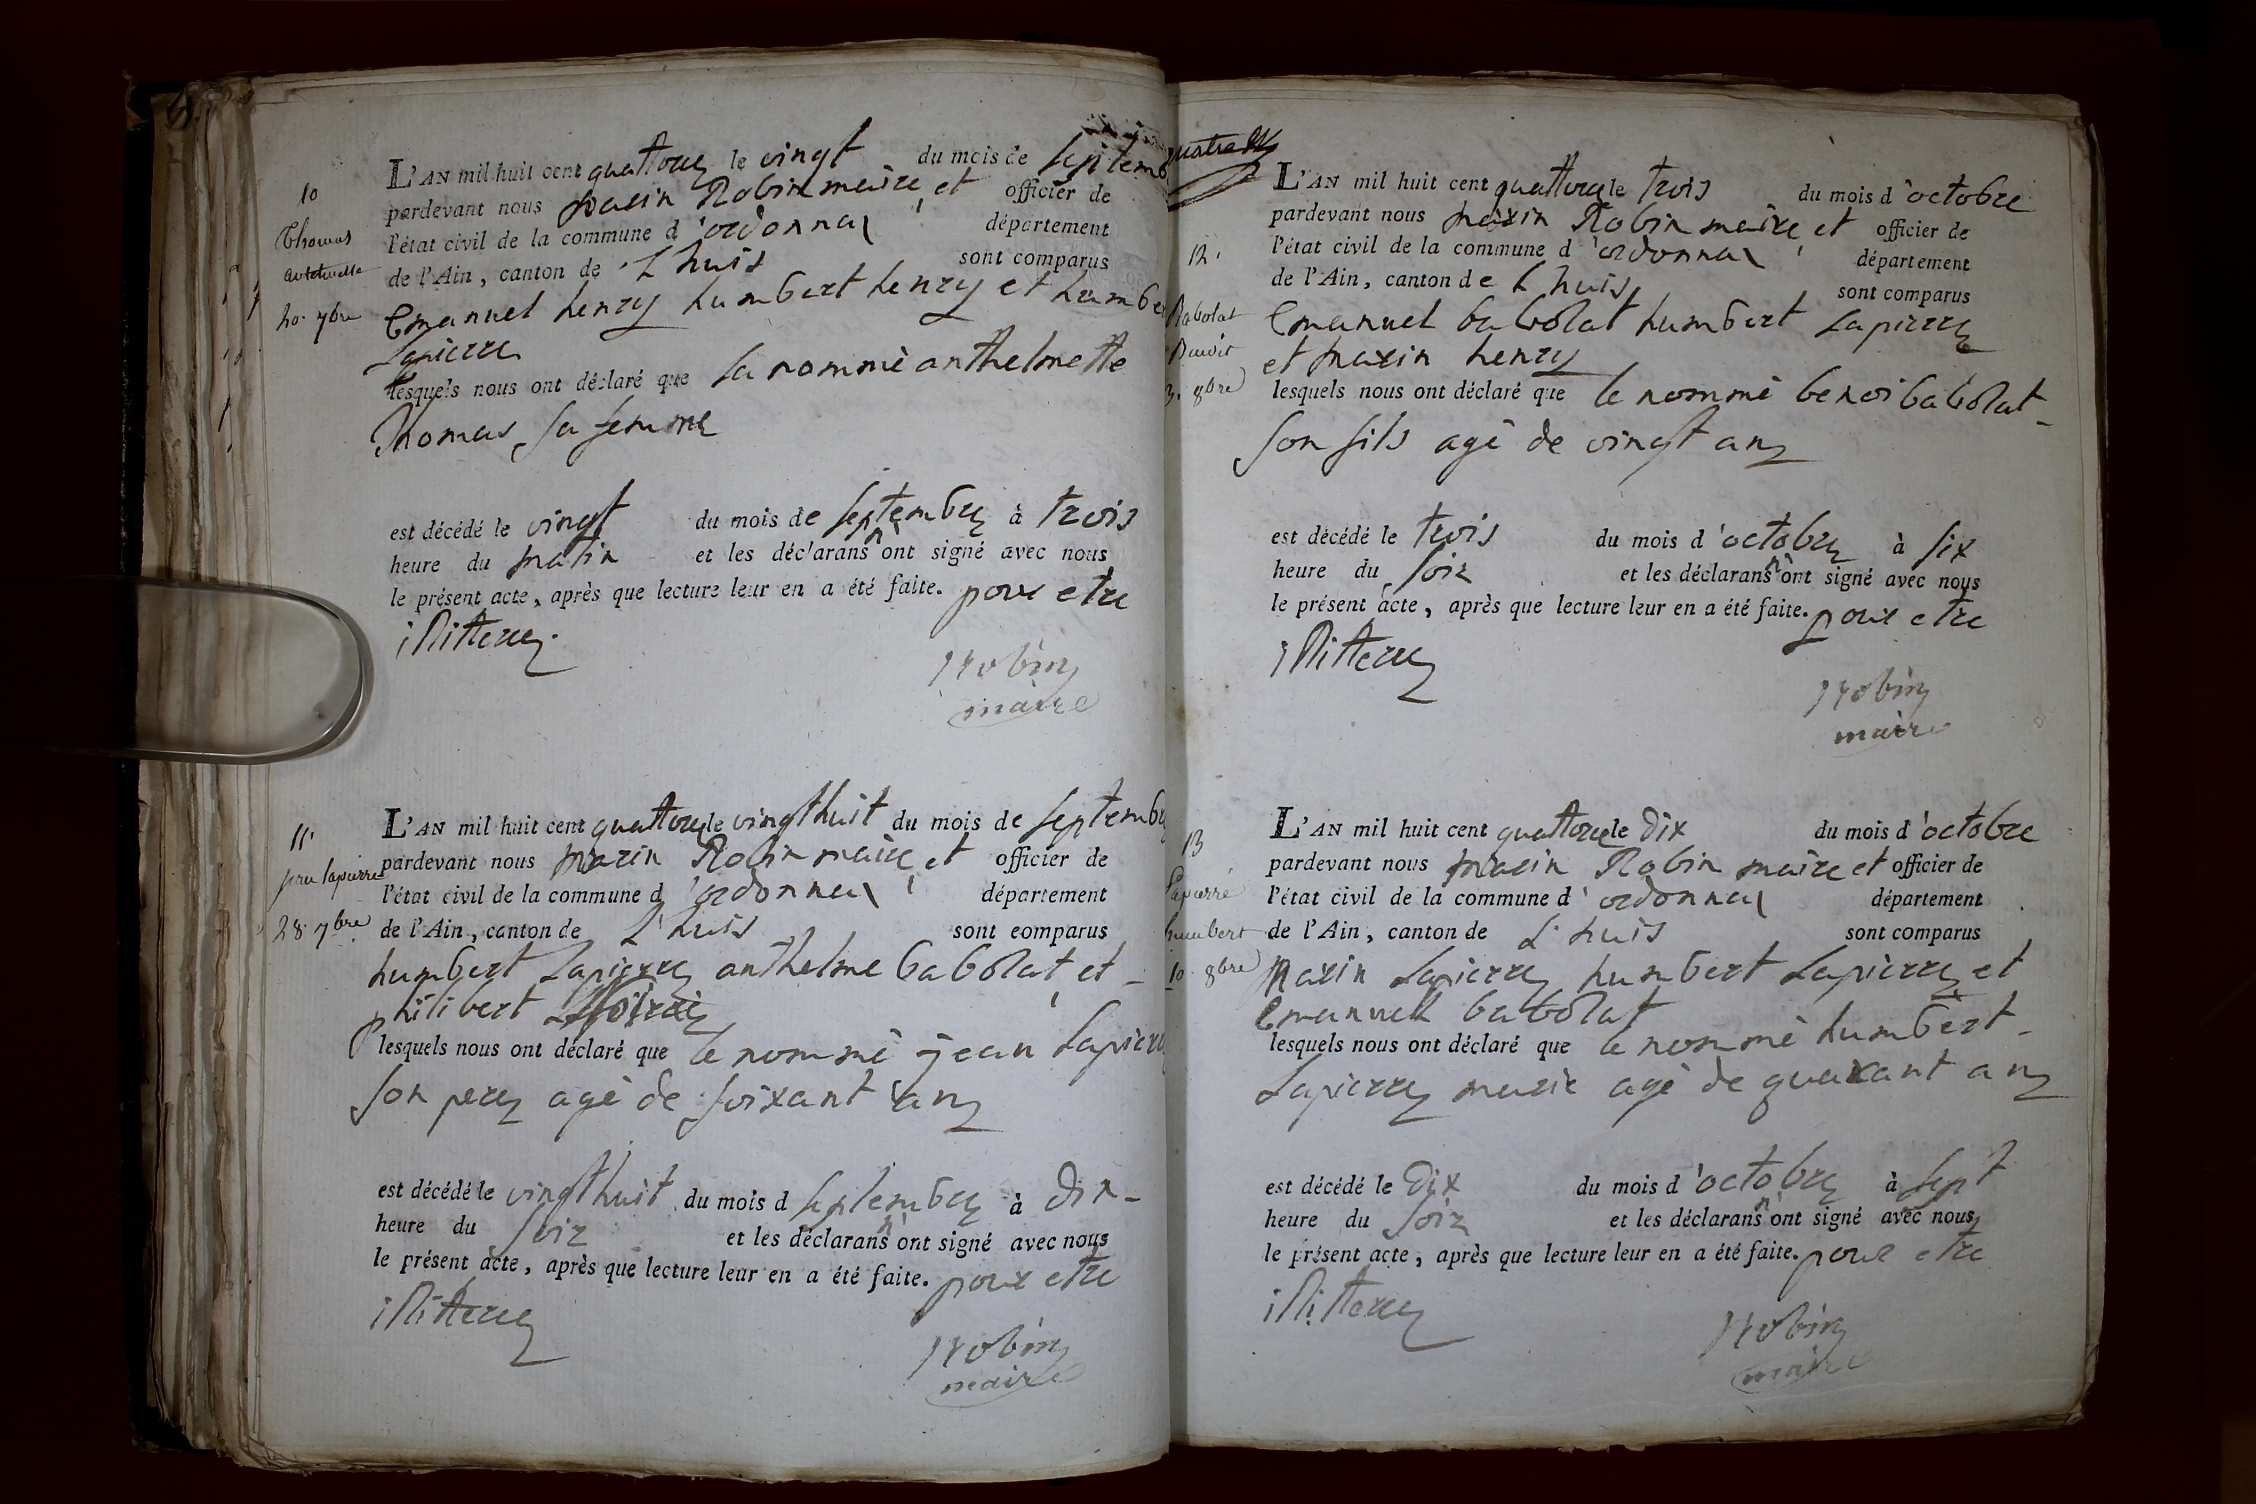 10
Thomas
antelmette
20. 7bre
L'AN mil huit cent quattorze le vingt du mois de septemb
pardevant nous marin Robin maire et officier de
l'état civil de la commune d'ordonnax département
de l'Ain, canton de L'huis sont comparus
Emanuel henry humbert henry et humber
Lapierre
lesquels nous ont déclaré que la nommè anthelmette
Thomas sa femme
est décédé le vingt du mois de septembre à trois
heure du matin et les déclarans n' ont signé avec nous
le présent acte, après que lecture leur en a été faite. pour etre
illitterez.
Robin
maire
11.
lapierre
28. 7bre
L'AN mil huit cent quattorze le vingt huit du mois de septembre
pardevant nous marin Robin maire et officier de
l'état civil de la commune d'ordonnax département
de l'Ain, canton de L'huis sont comparus
humbert Lapierre anthelme babolat et
philibert
lesquels nous ont déclaré que le nommè jean Lapierre
son pere agè de soixant an
est décédé le vingt huit du mois d septembre à dix
heure du soir et les déclarans n' ont signé avec nous
le présent acte, après que lecture leur en a été faite. pour etre
illitterez
Robin
maire
12.
Babolat
Benoit
3. 8bre
L'AN mil huit cent quattorze le trois du mois d'octobre
pardevant nous marin Robin maire et officier de
l'état civil de la commune d'ordonnax département
de l'Ain, canton de L'huis sont comparus
Emanuel babolat humbert Lapierre
et marin henry
lesquels nous ont déclaré que le nommè benoi babolat
son fils agè de vingt an
est décédé le trois du mois d'octobre à six
heure du soir et les déclarans n' ont signé avec nous
le présent acte, après que lecture leur en a été faite. pour etre
illitterez
Robin
maire
13
Lapierre
humbert
10. 8bre
L'AN mil huit cent quattorze le dix du mois d'octobre
pardevant nous marin Robin maire et officier de
l'état civil de la commune d'ordonnax département
de l'Ain, canton de L'huis sont comparus
marin Lapierre humbert Lapierre et
Emanuel babolat
lesquels nous ont déclaré que le nommè humbert
Lapierre marié agè de quarant an
est décédé le dix du mois d'octobre à sept
heure du soir et les déclarans n' ont signé avec nous
le présent acte, après que lecture leur en a été faite. pour etre
illitterez
Robin
maire